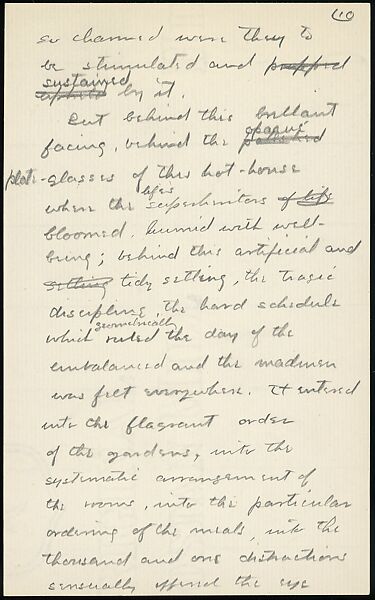 (10
so charmed were they to
be stimulated and propped
sustained
upheld by it.
But behind this brilliant
opaque
facing, behind the polished
plate-glasses of this hot-house
life's
where the superhunters of life
bloomed, humid with well-
being; behind this artificial and
setting tidy setting, the tragic
discipline, the hard schedule
geometrically
which ruled the day of the
unbalanced and the madmen
was felt everywhere. It entered
into the flagrant order
of the gardens, into the
systematic arrangement of
the rooms, into the particular
ordering of the meals, into the
thousand and one distractions
sensually offered the eye